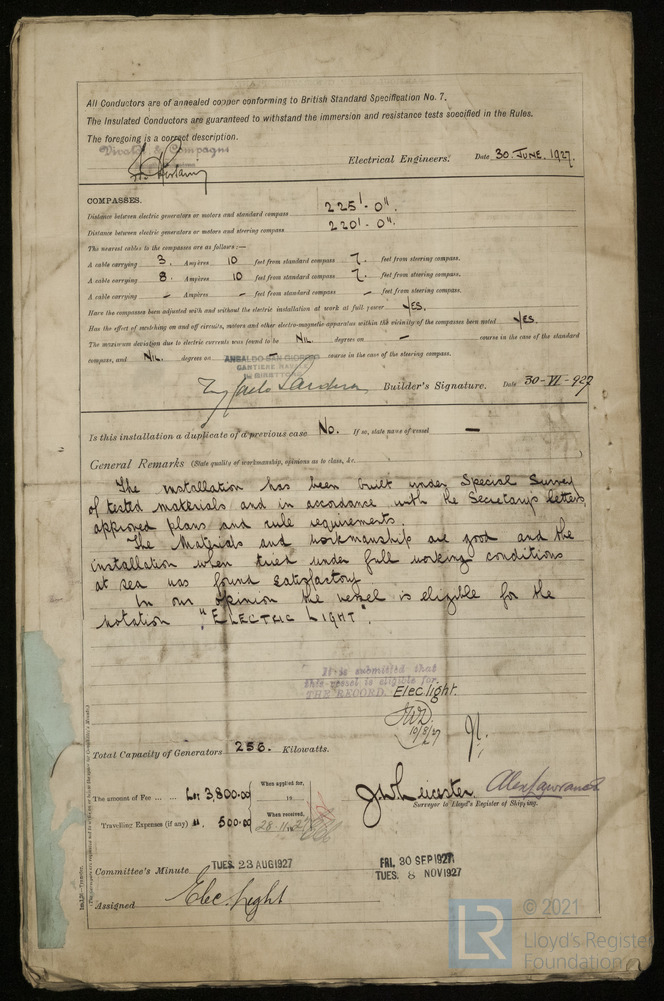 All Conductors are of annealed copper conforming to British Standard Specification No. 7.
The Insulated Conductors are guaranteed to withstand the immersion and resistance tests specified in the Rules.
The foregoing is a correct description.
Vivaldi & Compagni
Electrical Engineers. Date 30. JUNE. 1927.
COMPASSES.
Distance between electric generators or motors and standard compass 225'-0".
Distance between electric generators or motors and steering compass 220'-0".
The nearest cables to the compasses are as follows:—
A cable carrying 3. Ampères 10 feet from standard compass 7. feet from steering compass.
A cable carrying 8. Ampères 10 feet from standard compass 7. feet from steering compass.
A cable carrying – Ampères – feet from standard compass – feet from steering compass.
Have the compasses been adjusted with and without the electric installation at work at full power YES.
Has the effect of switching on and off circuits, motors and other electro-magnetic apparatus within the vicinity of the compasses been noted YES.
The maximum deviation due to electric currents was found to be NIL. degrees on – course in the case of the standard
compass, and NIL. degrees on – course in the case of the steering compass.
ANSALDO SAN GIORGIO
CANTIERE
Builder's Signature. Date 30-VI-927
Is this installation a duplicate of a previous case No. If so, state name of vessel —
General Remarks (State quality of workmanship, opinions as to class, &c.
The installation has been built under Special Survey
of tested materials and in accordance with the Secretary's letters,
approved plans and rule requirements.
The Materials and workmanship are good and the
installation when tried under full working conditions
at sea was found satisfactory
In our opinion the vessel is eligible for the
notation "ELECTRIC LIGHT".
It is submitted that
this vessel is eligible for
THE RECORD. Elec light.
10/8/27
Total Capacity of Generators 256. Kilowatts.
The amount of Fee ... ... Lit 3,800.00
When applied for,
19
Travelling Expenses (if any) 500.00
When received,
28-11-27
J. W. Leicester Alex Lawrance
Surveyor to Lloyd's Register of Shipping.
Committee's Minute TUES. 23 AUG 1927
FRI. 30 SEP 1927
TUES. 8 NOV 1927
Assigned Elec. Light
LR © 2021
Lloyd's Register
Foundation